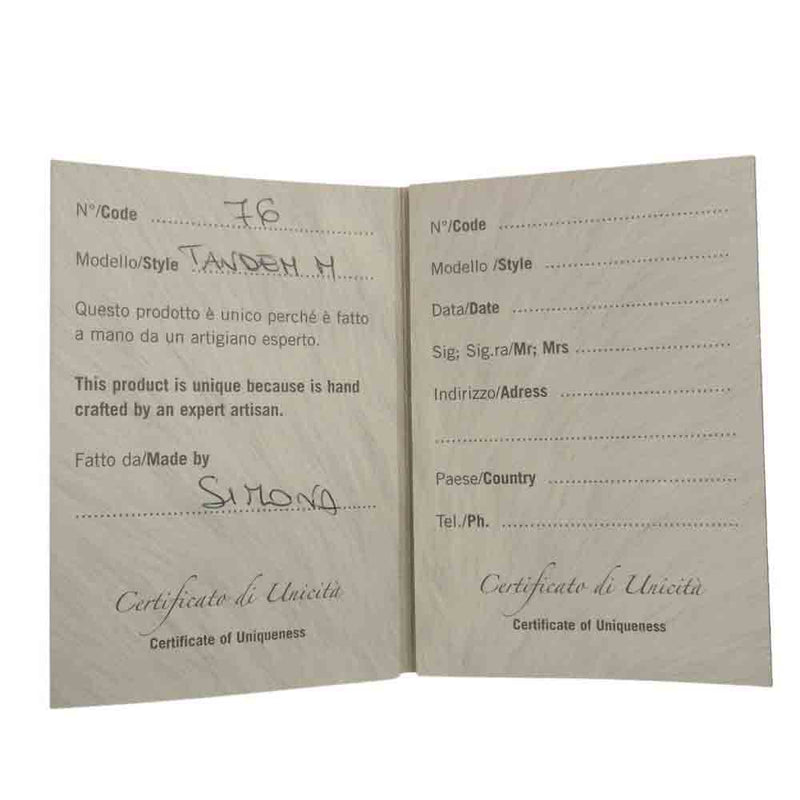 N°/Code 76
Modello/Style TANDEM M
Questo prodotto è unico perché è fatto
a mano da un artigiano esperto.
This product is unique because is hand
crafted by an expert artisan.
Fatto da/Made by
SIMONA
Certificato di Unicità
Certificate of Uniqueness
N°/Code
Modello /Style
Data/Date
Sig; Sig.ra/Mr; Mrs
Indirizzo/Adress
Paese/Country
Tel./Ph.
Certificato di Unicità
Certificate of Uniqueness